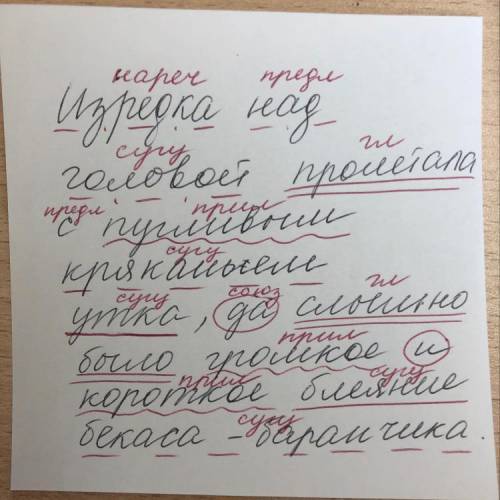 нареч предл
Изредка над
сущ гл
головой пролетала
предл прил
с пугливым
сущ
кряканьем
сущ союз гл
утка, да слышно
прил
было громкое и
прил сущ
короткое блеяние
сущ
бекаса - баранчика.